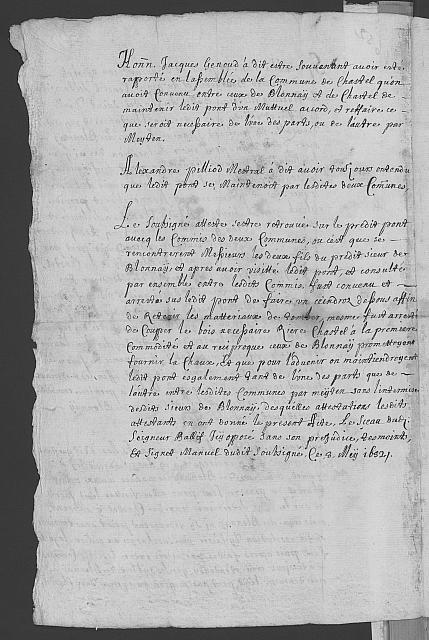 Honñ. Jacques Genoud à dit estre souvenant avoir esté
rapporté en lassemblée de la Commune de Chastel quon
avoit Convenu entre ceux de Blonnaÿ et de Chastel de
maintenir ledit pont dun Muttuel accord, et reffaire ce
que seroit necessaire de lune des parts, ou de lautre par
Meÿten.
Alexandre pilliod Mestral à dit avoir tousjours entendu
que ledit pont se Maintenoit par lesdites deux Com̃unes
Le Soubsigné atteste sestre retrouvé sur le predit pont
avecq les Commis des deux Communes, ou cest que se
rencontrerent Messieurs les deux fils du predit sieur de
Blonnaÿ, et apres avoir visitté ledit pont, et consulté
par ensemble entre lesdits Commis. fust convenu et
arresté sus ledit pont de faire un dessous affin
de Retenir les matteriaux de tomber, mesme fust arresté
de Coupper le bois necessaire Riere Chastel à la premiere
Commodité et au reciproque ceux de Blonnaÿ promettoyent
fournir la Chaux, Et que pour ladvenir on maintiendroyent
ledit pont esgalement tant de lune des parts que de
lautre entre lesdites Communes par meÿten sans
desdits Sieurs de Blonnaÿ, desquelles attestations lesdits
attestants en ont donné le present Acte, Le Sceau dudit
Seigneur Ballif Icÿ opposé sans son prejudice,
Et Signet Manuel dudit Soubsigné, Ce 3. Meÿ 1682.